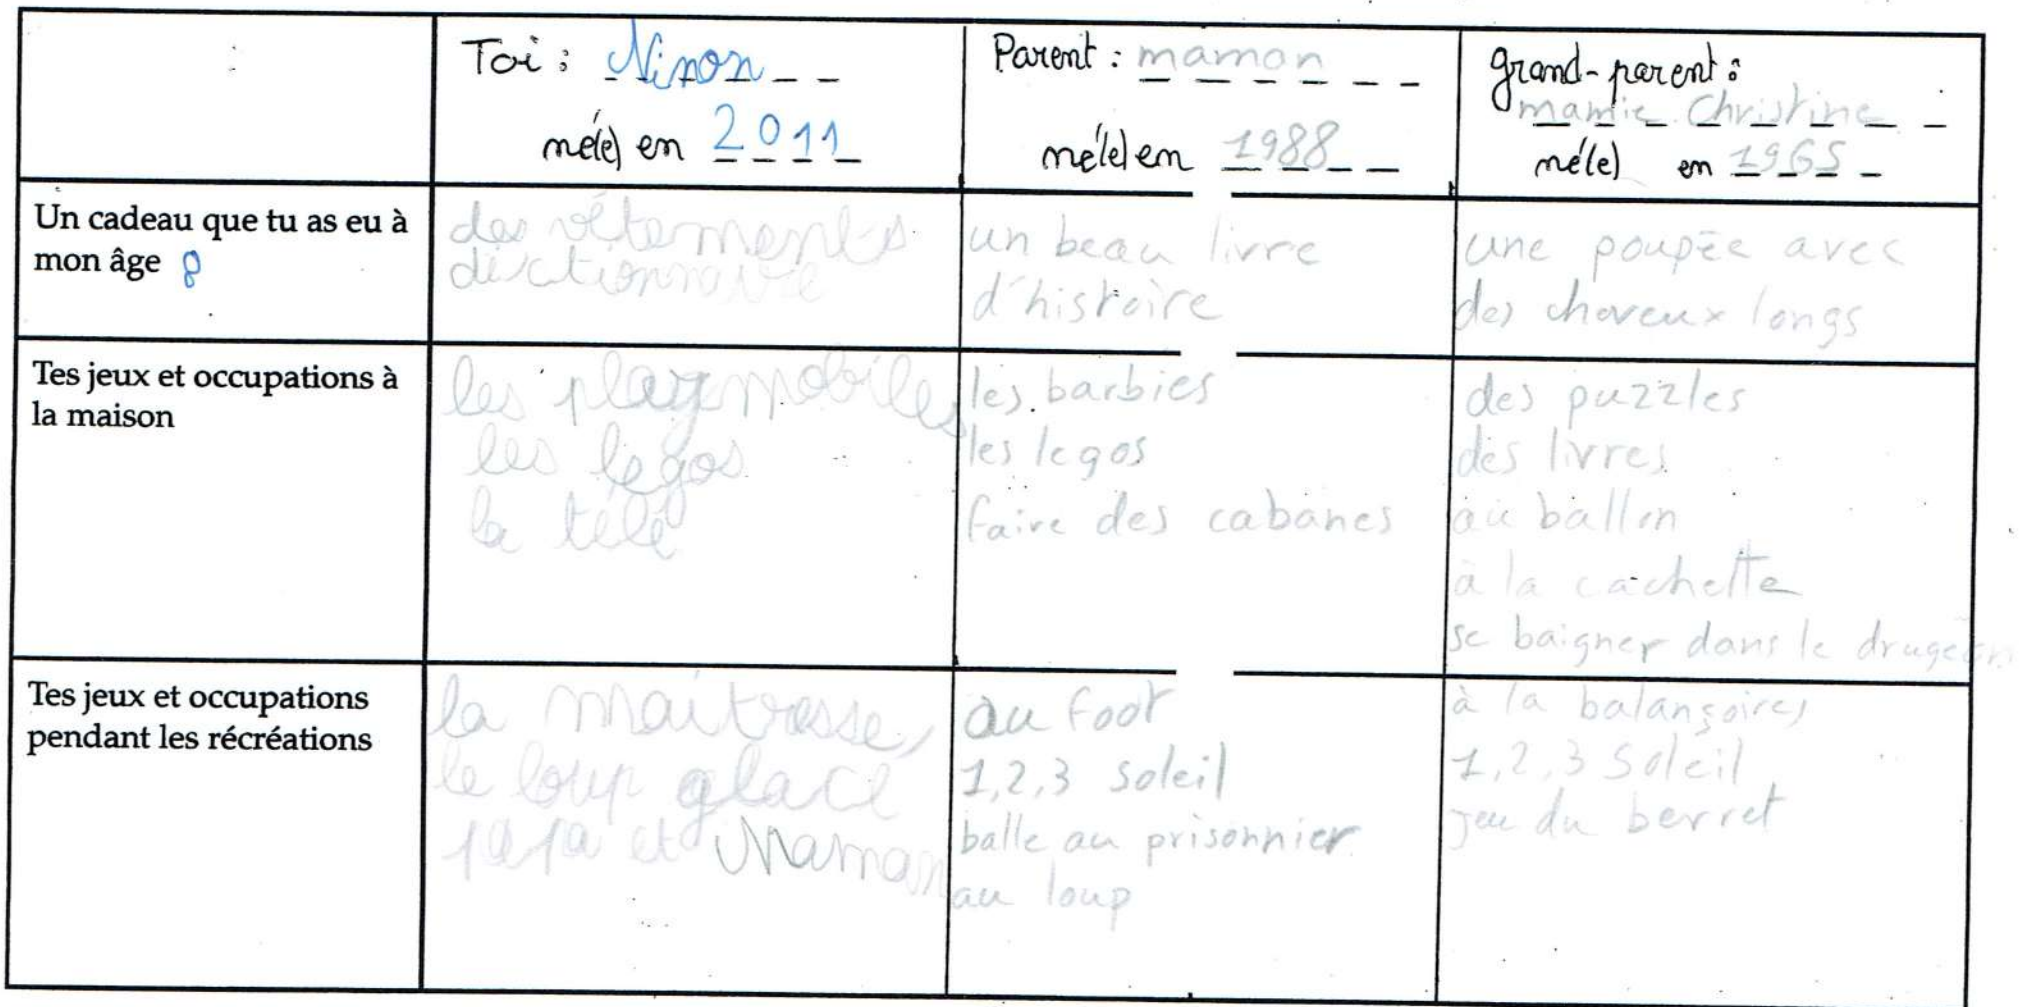 Toi : Ninon
né(e) en 2011
Parent : maman
né(e) en 1988
grand-parent :
mamie Christine
né(e) en 1965
Un cadeau que tu as eu à
mon âge 8
des vêtements
dictionnaire
un beau livre
d'histoire
une poupée avec
des cheveux longs
Tes jeux et occupations à
la maison
les playmobiles
les legos
la télé
les barbies
les legos
faire des cabanes
des puzzles
des livres
au ballon
à la cachette
se baigner dans le drugeon
Tes jeux et occupations
pendant les récréations
la maitresse,
le loup glacé
papa et Maman
au foot
1,2,3 soleil
balle au prisonnier
au loup
à la balançoires
1,2,3 Soleil
jeu du berret